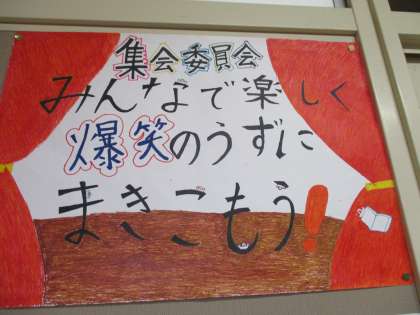 集会委員会
みんなで楽しく
爆笑のうずに
まきこもう!